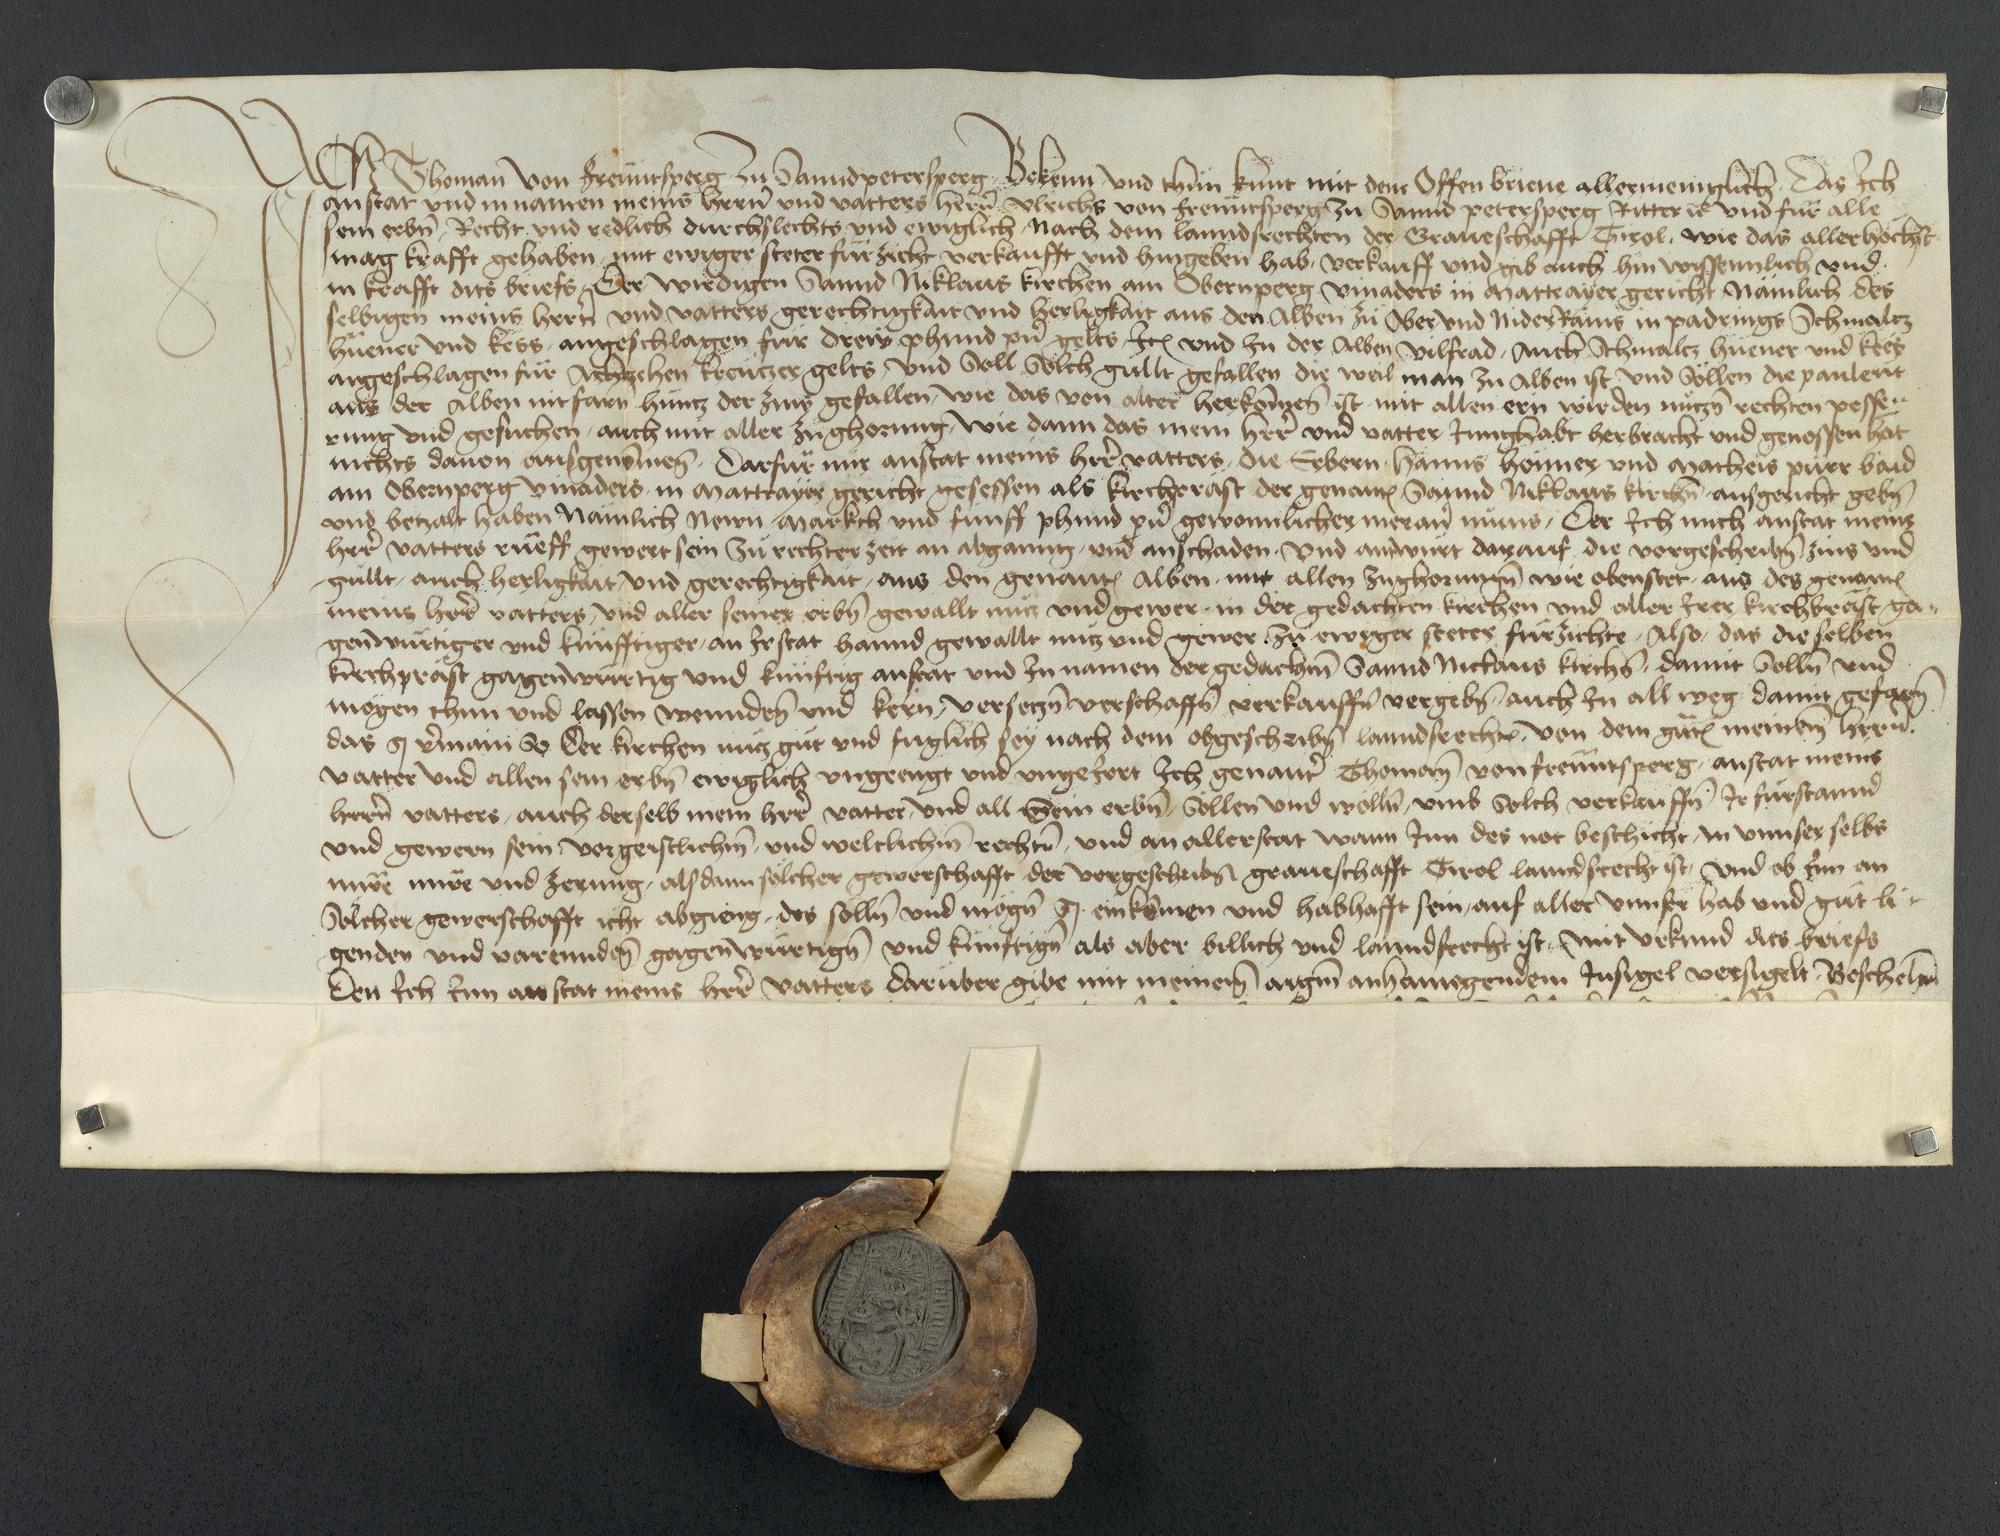 Ich Thoman von freuntsperg zu Sannd petersperg Bekenn und thun kunt mit dem Offen brieve allermeniglich Das Ich
anstat und in namen meins herrn und vatters herrn Ulrichs von freuntsperg zu Sannd petersperg Ritter und für alle
sein erbn Recht und redlich durchslechts und ewiglich Nach dem lanndsrechten der Graveschafft Tirol wie das allerhöchst
mag krafft gehaben mit ewiger steter fürzicht verkaufft und hingeben hab verkauff und gib auch hin wissennlich und
in krafft dits briefs Der wirdigen Sannd Niklaus kirchen am Obernperg vinaders in Mattrayer gericht Nämlich des
selbigen meins herrn und vatters gerechtigkait und herligkait aus den Alben zu Ober und Nider Rains in padrings Schmaltz
hüener und kess angeschlagen für drew phund gelts und In der Alben vilfrad Auch Schmaltz hüener und kes
angeschlagen für Achtzehen kreutzer gelts Und Soll Sölch güllt gefallen die weil man zu Alben ist Und Sollen die paulewt
aus der Alben nit farn huntz der Zins gefallen wie das von alter herkomen ist mit allen ern wirden nutzn rechten pesse
rung und gesuchen auch mit aller zughorung wie dann das mein herr und vatter Innghabt herbracht und genossen hat
nichts davon ausgenomen Darfür mir anstat meins herr vatters die Erbern Hanns und Matheis baid
am Obernperg vinaders in Mattrayer gericht gesessen als kirchprast der genant Sannd Niklaus kirchn ausgericht gebn
und betzalt haben Nämlich Newn Markch und funff phund gewonnlicher meraner muns Der Ich mich anstat meins
herr vatters rüeff gewert sein Zu rechter zeit an abganng und anschaden Und antwurt darauf die vorgeschribn zins und
güllt auch herligkait und gerechtigkait aus den genant Alben mit allen zughorungn wie obenstet aus des genant
meins herr vatters und aller seiner erbn gewallt nutz und gewer in der gedachten kirchen und aller Irer kirchbräst ga
genwürtiger und künfftiger an Ir stat hannd gewallt nutz und gewer zu ewiger steter fürzichte Also das die selben
kirchpräst gagenwürtig und künftig anstat und In namen der gedachtn Sannd Niclaus kirchn damit Solln und
mögen thun und lassen wennden und kern versetzn verschaffn verkauffn vergebn auch In all weg damit gefarn
das So Der kirchen nutz gut und fuglich sey nach dem obgeschribn lanndsrecht von dem meinem herrn
vatter und allen sein erbn ewiglich ungeengt und ungeirrt Ich genanter Thoman von freuntsperg anstat meins
herrn vatters auch derselb mein herr vatter und all Sein erbn Sollen und wolln umb Solch verkauffn Ir fürstannd
und gewern sein Vor geistlichm und weltlichm rechtn und an aller stat wann Inn des not beschicht In unnser selbs
müe und zerung als dann sölcher gewerschafft der vorgeschribn graveschafft Tirol lanndsrecht ist Und ob Inn an
Sölcher gewerschafft icht abgieng des solln und mögn einkomen und habhafft sein auf aller unnser hab und güt li
genden und varennden gagenwürtign und künftign als aber billich und lanndsrecht ist Mit Urkund dits briefs
Den Ich Inn anstat meins herr vatters darüber gibe mit meinem aigm anhanngendem Insigel versigelt Beschehn